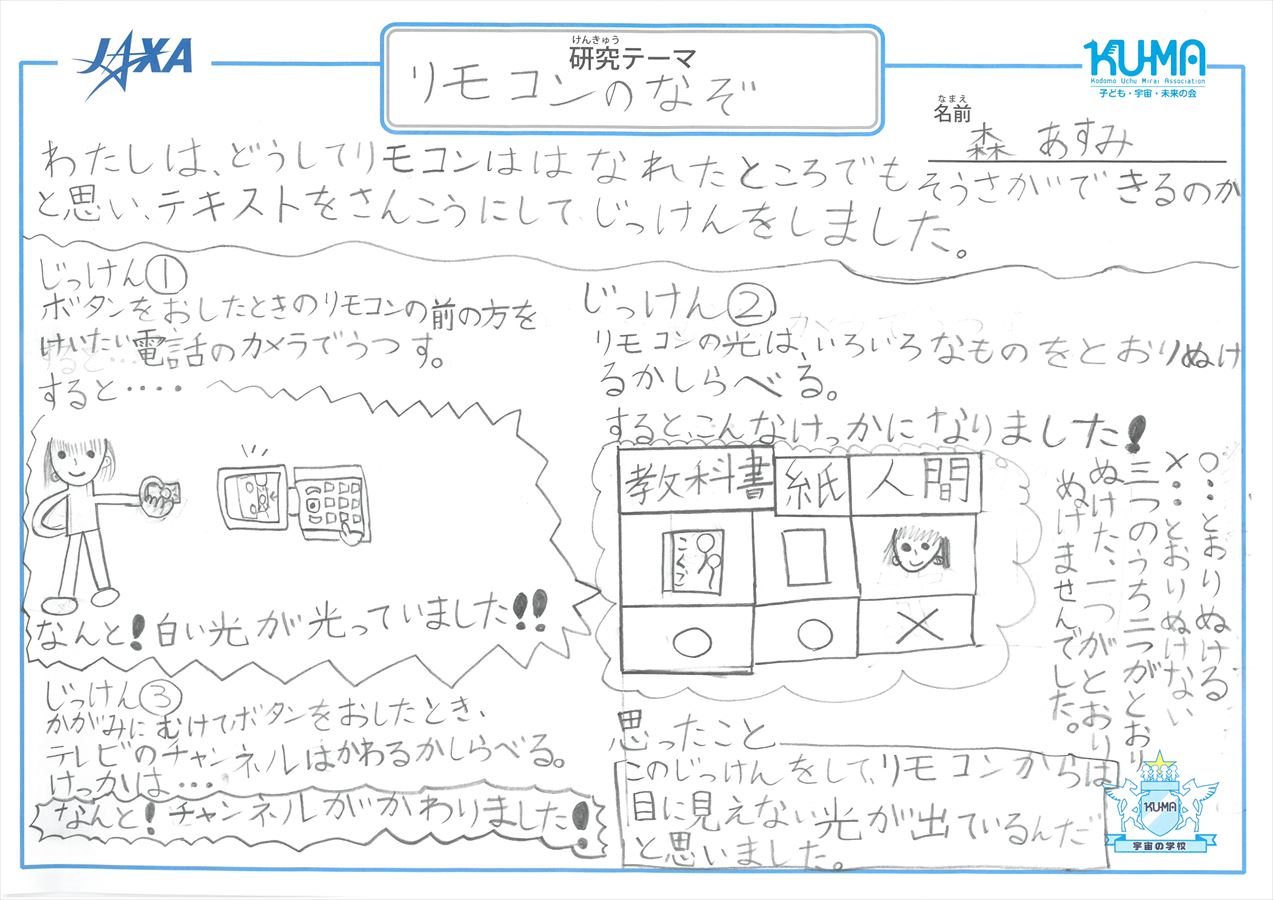 JAXA
けんきゅう
研究テーマ
リモコンのなぞ
KUMA
Kodomo Uchu Mirai Association
子ども・宇宙・未来の会
なまえ
名前
森 あすみ
わたしは、どうしてリモコンははなれたところでもそうさができるのか
と思い、テキストをさんこうにして、じっけんをしました。
じっけん①
ボタンをおしたときのリモコンの前の方を
けいたい電話のカメラでうつす。
すると‥‥
なんと!白い光が光っていました!!
じっけん②
リモコンの光は、いろいろなものをとおりぬけ
るかしらべる。
すると、こんなけっかになりました!
教科書 紙 人間
こくご
○ ○ ×
○…とおりぬける
×…とおりぬけない
三つのうち二つがとおり
ぬけた、一つがとおり
ぬけませんでした。
じっけん③
かがみにむけてボタンをおしたとき、
テレビのチャンネルはかわるかしらべる。
けっかは…
なんと!チャンネルがかわりました!
思ったこと
このじっけんをして、リモコンからは
目に見えない光が出ているんだ
と思いました。
KUMA
宇宙の学校